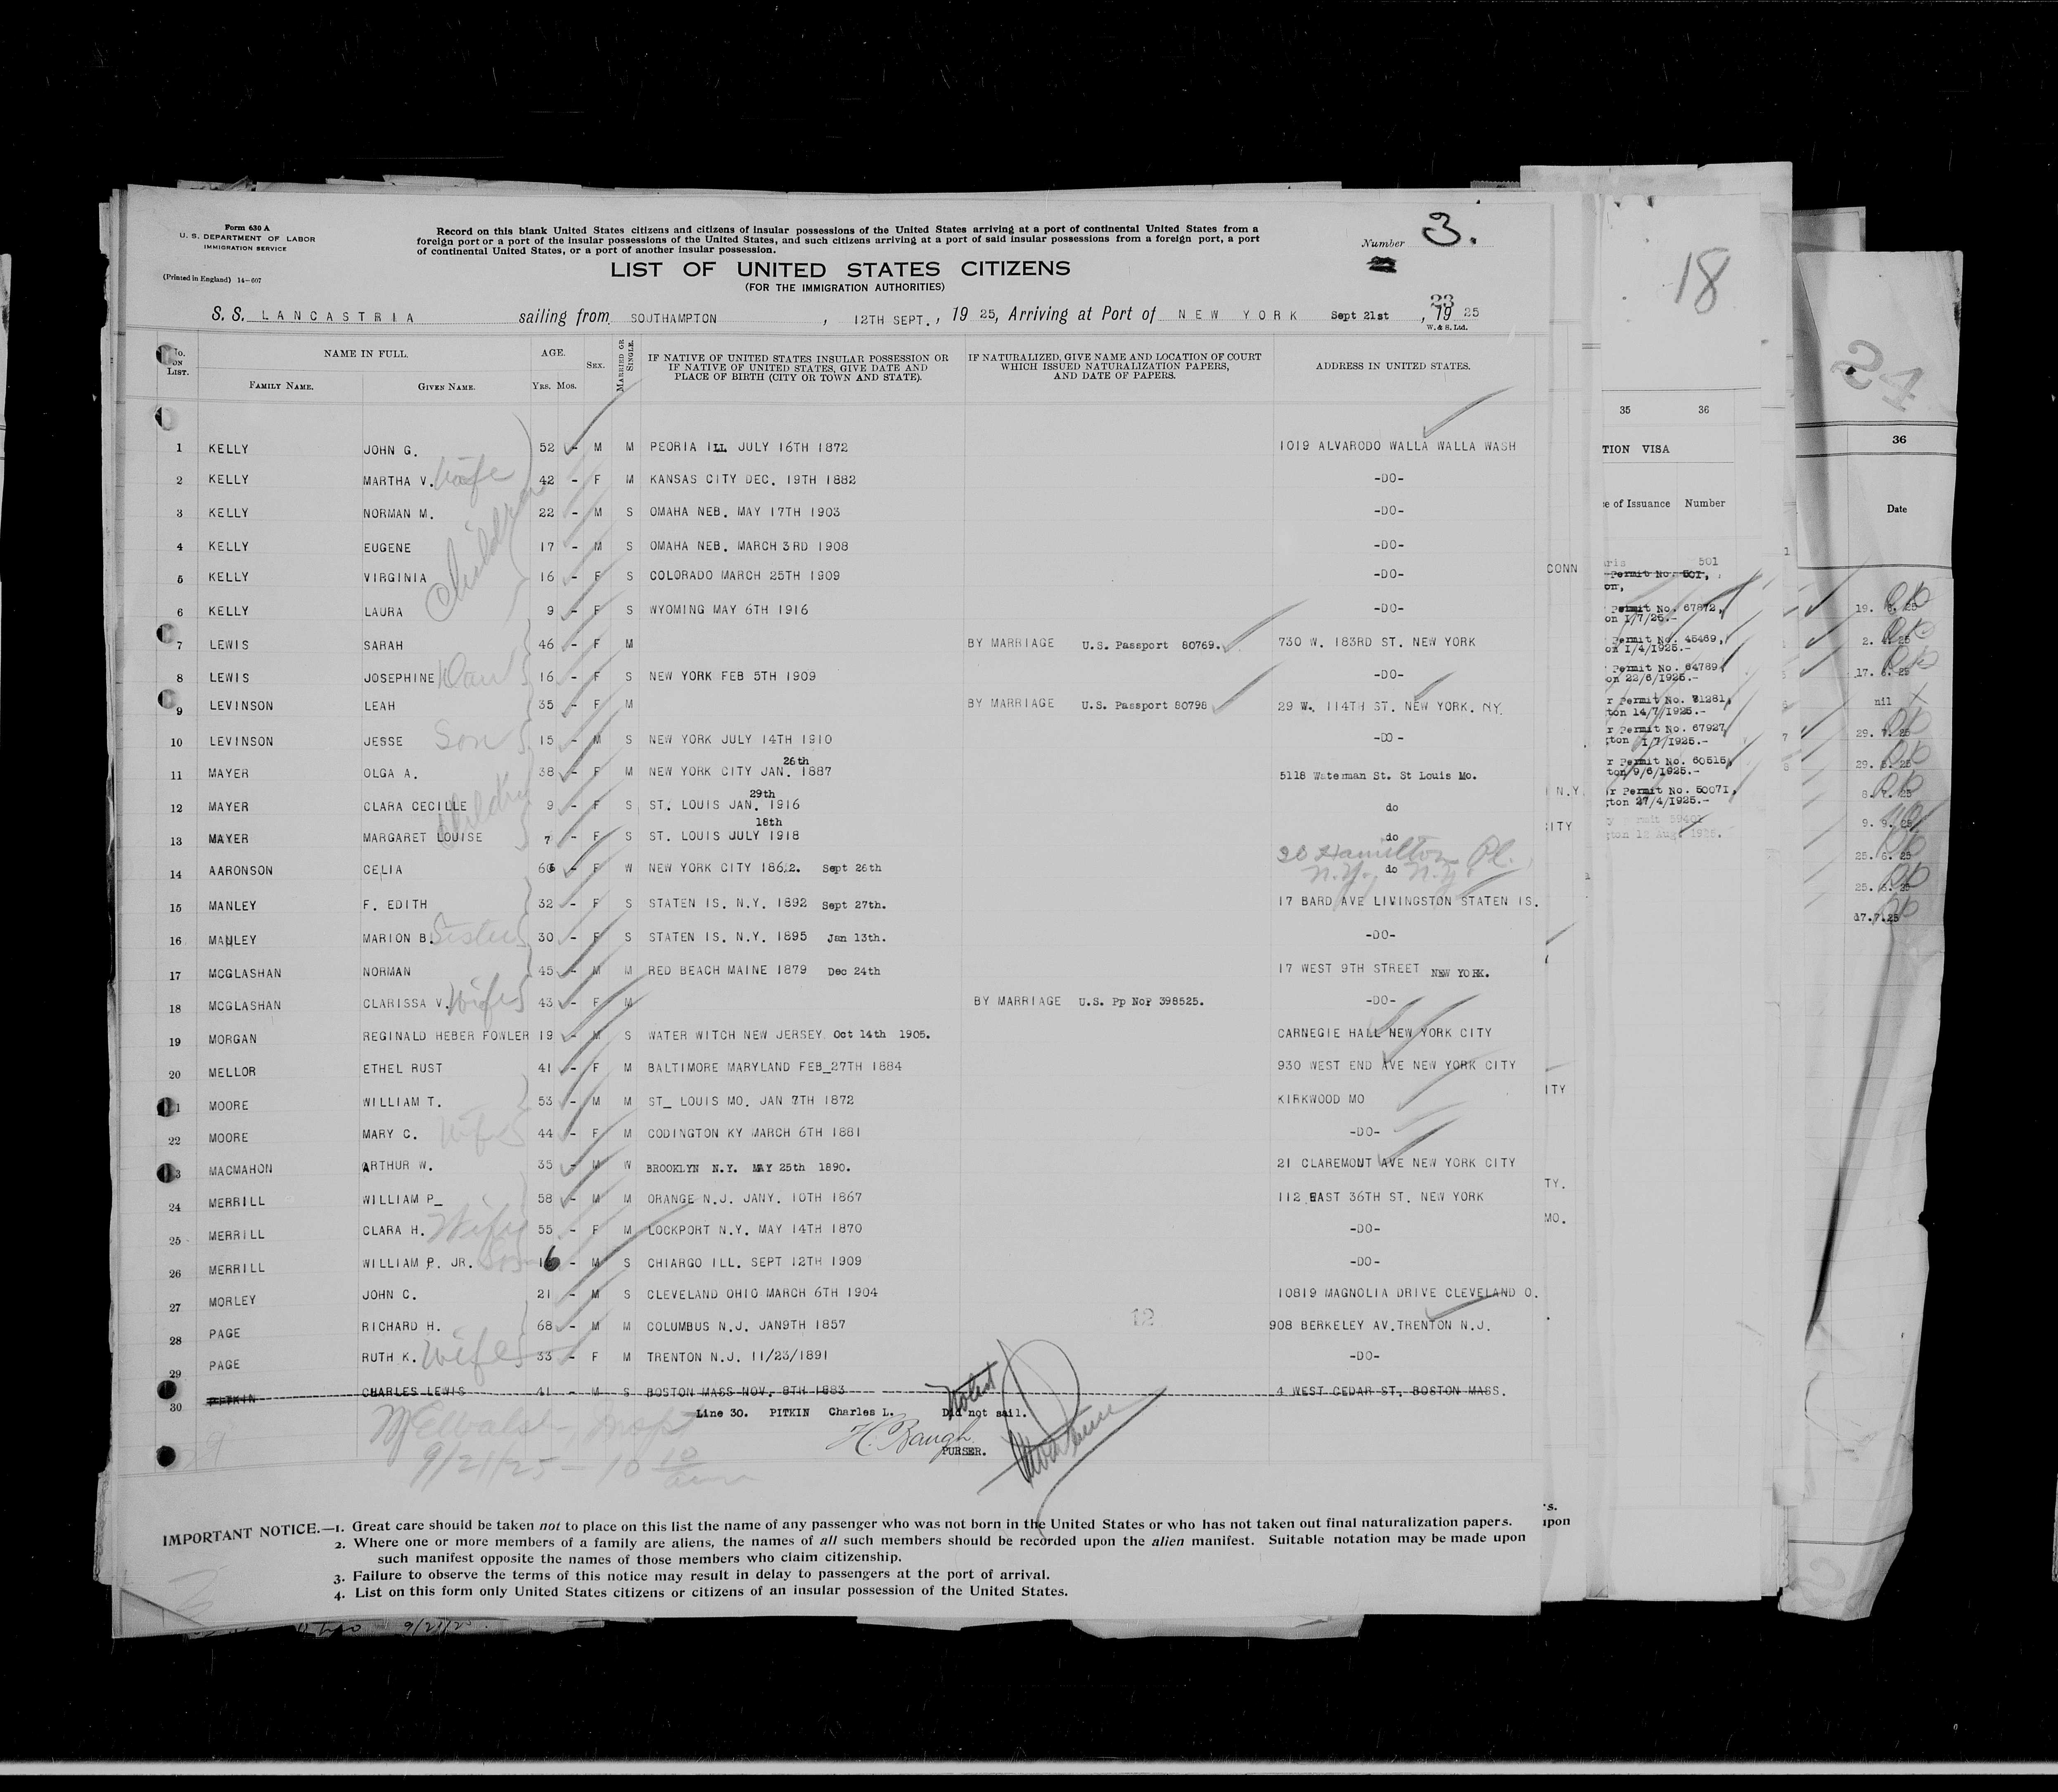 Form 630 A
U. S. DEPARTMENT OF LABOR
IMMIGRATION SERVICE
(Printed in England) 14-607
Record on this blank United States citizens and citizens of insular possessions of the United States arriving at a port of continental United States from a
foreign port or a port of the insular possessions of the United States, and such citizens arriving at a port of said insular possessions from a foreign port, a port
of continental United States, or a port of another insular possession.
Number 3.
LIST OF UNITED STATES CITIZENS
(FOR THE IMMIGRATION AUTHORITIES)
S.S. LANCASTRIA sailing from SOUTHAMPTON, 12TH SEPT., 19 25, Arriving at Port of NEW YORK Sept 21st 23, 19 25
W. & S. Ltd.
No. ON LIST. NAME IN FULL. FAMILY NAME. GIVEN NAME. AGE. YRS. MOS. SEX. MARRIED OR SINGLE. IF NATIVE OF UNITED STATES INSULAR POSSESSION OR IF NATIVE OF UNITED STATES, GIVE DATE AND PLACE OF BIRTH (CITY OR TOWN AND STATE). IF NATURALIZED, GIVE NAME AND LOCATION OF COURT WHICH ISSUED NATURALIZATION PAPERS, AND DATE OF PAPERS. ADDRESS IN UNITED STATES.
1 KELLY JOHN G. 52 - M M PEORIA ILL JULY 16TH 1872 1019 ALVARODO WALLA WALLA WASH
2 KELLY MARTHA V. Wife 42 - F M KANSAS CITY DEC. 19TH 1882 -DO-
3 KELLY NORMAN M. Children 22 - M S OMAHA NEB. MAY 17TH 1903 -DO-
4 KELLY EUGENE 17 - M S OMAHA NEB. MARCH 3RD 1908 -DO-
5 KELLY VIRGINIA 16 - F S COLORADO MARCH 25TH 1909 -DO-
6 KELLY LAURA 9 - F S WYOMING MAY 6TH 1916 -DO-
7 LEWIS SARAH 46 - F M BY MARRIAGE U.S. Passport 80769. 730 W. 183RD ST. NEW YORK
8 LEWIS JOSEPHINE Dau 16 - F S NEW YORK FEB 5TH 1909 -DO-
9 LEVINSON LEAH 35 - F M BY MARRIAGE U.S. Passport 80798 29 W. 114TH ST. NEW YORK. NY
10 LEVINSON JESSE Son 15 - M S NEW YORK JULY 14TH 1910 -DO-
11 MAYER OLGA A. 38 - F M NEW YORK CITY JAN. 26th 1887 5118 Waterman St. St Louis Mo.
12 MAYER CLARA CECILLE Children 9 - F S ST. LOUIS JAN. 29th 1916 do
13 MAYER MARGARET LOUISE 7 - F S ST. LOUIS JULY 18th 1918 do
14 AARONSON CELIA F W NEW YORK CITY 1862. Sept 26th do 20 Hamilton Pl. N.Y. N.Y.
15 MANLEY F. EDITH 32 - F S STATEN IS. N.Y. 1892 Sept 27th. 17 BARD AVE LIVINGSTON STATEN IS.
16 MANLEY MARION B. Sister 30 - F S STATEN IS. N.Y. 1895 Jan 13th. -DO-
17 MCGLASHAN NORMAN 45 - M M RED BEACH MAINE 1879 Dec 24th 17 WEST 9TH STREET NEW YORK.
18 MCGLASHAN CLARISSA V. Wife 43 - F M BY MARRIAGE U.S. Pp No? 398525. -DO-
19 MORGAN REGINALD HEBER FOWLER 19 - M S WATER WITCH NEW JERSEY. Oct 14th 1905. CARNEGIE HALL NEW YORK CITY
20 MELLOR ETHEL RUST 41 - F M BALTIMORE MARYLAND FEB_27TH 1884 930 WEST END AVE NEW YORK CITY
21 MOORE WILLIAM T. 53 - M M ST_ LOUIS MO. JAN 7TH 1872 KIRKWOOD MO
22 MOORE MARY C. Wife 44 - F M CODINGTON KY MARCH 6TH 1881 -DO-
23 MACMAHON ARTHUR W. 35 - M W BROOKLYN N.Y. MAY 25th 1890. 21 CLAREMOUT AVE NEW YORK CITY
24 MERRILL WILLIAM P_ 58 - M M ORANGE N.J. JANY. 10TH 1867 112 EAST 36TH ST. NEW YORK
25 MERRILL CLARA H. Wife 55 - F M LOCKPORT N.Y. MAY 14TH 1870 -DO-
26 MERRILL WILLIAM P. JR. Son 16 - M S CHIARGO ILL. SEPT 12TH 1909 -DO-
27 MORLEY JOHN C. 21 - M S CLEVELAND OHIO MARCH 6TH 1904 10819 MAGNOLIA DRIVE CLEVELAND O.
28 PAGE RICHARD H. 68 - M M COLUMBUS N.J. JAN9TH 1857 12 908 BERKELEY AV.TRENTON N.J.
29 PAGE RUTH K. Wife 33 - F M TRENTON N.J. 11/23/1891 -DO-
30 PITKIN CHARLES LEWIS 41 - M S BOSTON MASS NOV. 8TH 1883 4 WEST CEDAR ST. BOSTON MASS.
Line 30. PITKIN Charles L. Did not sail.
H. Baugh
PURSER.
9/21/25 - 10
IMPORTANT NOTICE.—1. Great care should be taken not to place on this list the name of any passenger who was not born in the United States or who has not taken out final naturalization papers.
2. Where one or more members of a family are aliens, the names of all such members should be recorded upon the alien manifest. Suitable notation may be made upon
such manifest opposite the names of those members who claim citizenship.
3. Failure to observe the terms of this notice may result in delay to passengers at the port of arrival.
4. List on this form only United States citizens or citizens of an insular possession of the United States.
CONN
N.Y.
CITY
ITY
TY.
MO.
's.
upon
18
35 36
TION VISA
e of Issuance Number
501
Permit No. 501,
on,
Permit No. 67872,
on 1/7/25.-
Permit No. 45469,
on 1/4/1925.-
Permit No. 64789,
on 22/6/1925.-
r Permit No. 71281,
ton 14/7/1925.-
r Permit No. 67927
ton 1/7/1925.-
r Permit No. 60515,
ton 9/6/1925.-
r Permit No. 50071,
ton 27/4/1925.-
24
36
Date
19. 6. 25
2. 4. 25
17. 6. 25
nil
29. 7. 25
29. 6. 25
8. 7. 25
9. 9. 25
25. 6. 25
25. 6. 25
17.7.25